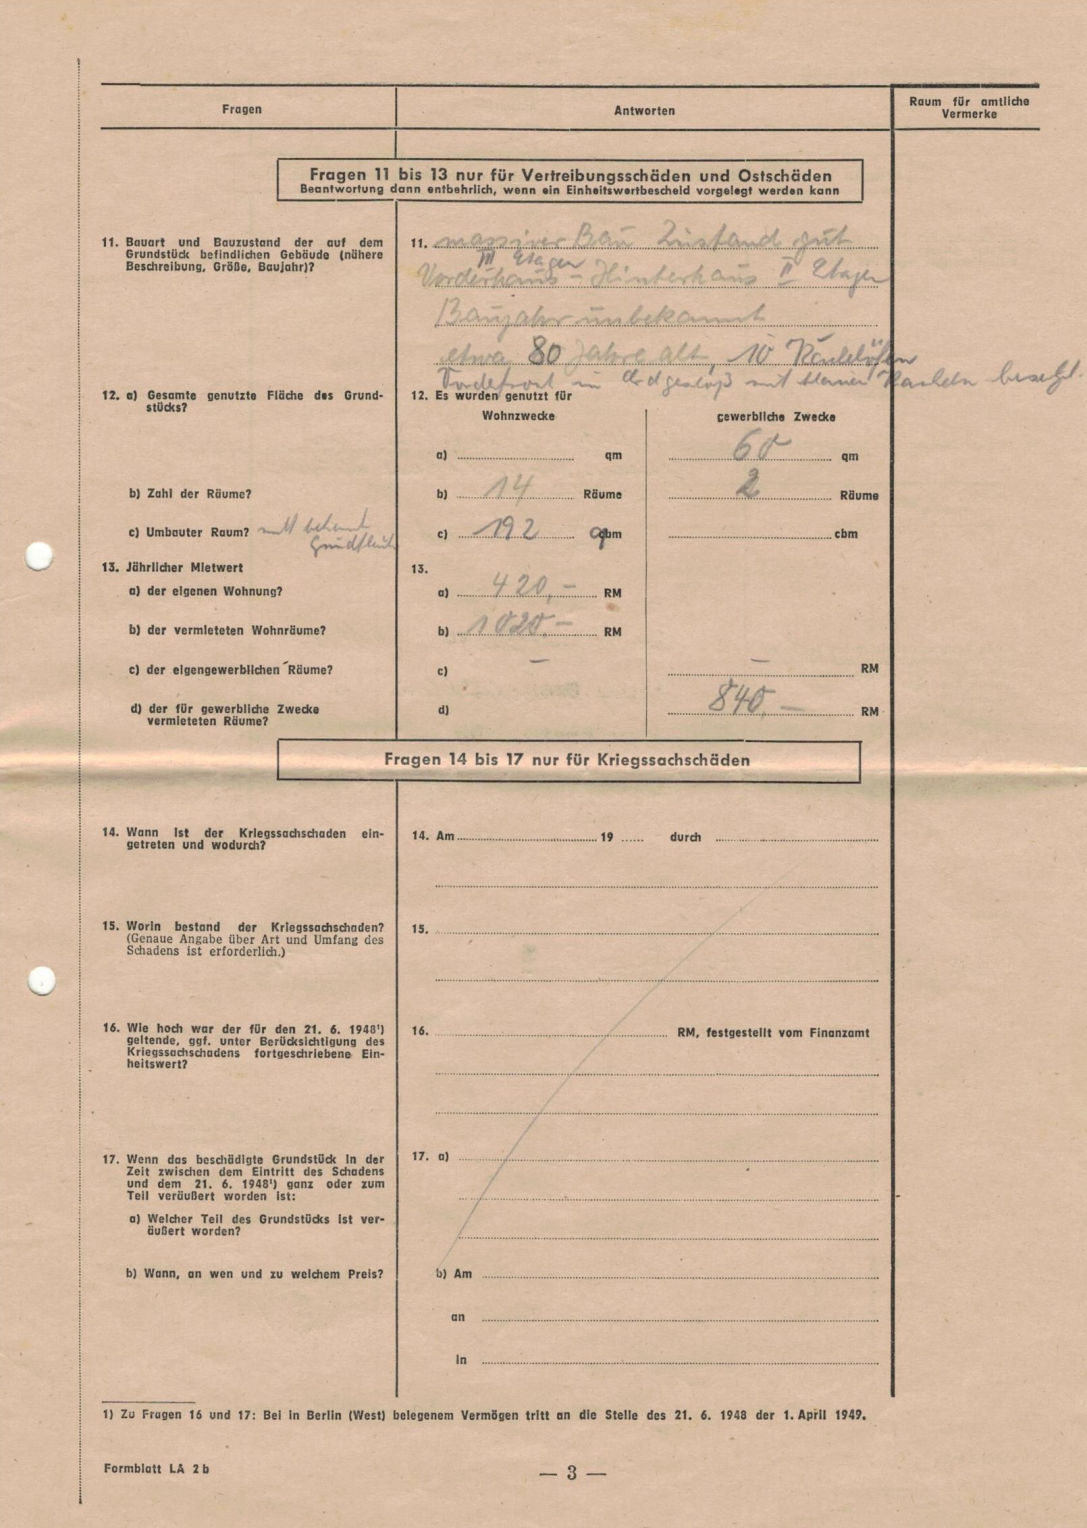 Fragen
Antworten
Raum für amtliche
Vermerke
Fragen 11 bis 13 nur für Vertreibungsschäden und Ostschäden
Beantwortung dann entbehrlich, wenn ein Einheitswertbescheid vorgelegt werden kann
11. Bauart und Bauzustand der auf dem
Grundstück befindlichen Gebäude (nühere
Beschreibung, Größe, Baujahr)?
11. massiver Bau Zustand gut
III Etagen
Vorderhaus - Hinterhaus II Etagen
Baujahr unbekannt
etwa 80 Jahre alt, 10 Kachelöfen
Vorderfront im Erdgeschoß mit Kacheln besetzt.
12. a) Gesamte genutzte Fläche des Grund-
stücks?
12. Es wurden genutzt für
Wohnzwecke
gewerbliche Zwecke
a) qm
60 qm
b) Zahl der Räume?
b) 14 Räume
2 Räume
c) Umbauter Raum? nicht bekannt
Grundfläche
c) 192 qbm
cbm
13. Jährlicher Mietwert
13.
a) der eigenen Wohnung?
a) 420,- RM
b) der vermieteten Wohnräume?
b) 1020,- RM
c) der eigengewerblichen Räume?
c) -
- RM
d) der für gewerbliche Zwecke
vermieteten Räume?
d)
840,- RM
Fragen 14 bis 17 nur für Kriegssachschäden
14. Wann ist der Kriegssachschaden ein-
getreten und wodurch?
14. Am 19 durch
15. Worin bestand der Kriegssachschaden?
(Genaue Angabe über Art und Umfang des
Schadens ist erforderlich.)
15.
16. Wie hoch war der für den 21. 6. 1948¹)
geltende, ggf. unter Berücksichtigung des
Kriegssachschadens fortgeschriebene Ein-
heitswert?
16. RM, festgestellt vom Finanzamt
17. Wenn das beschädigte Grundstück in der
Zeit zwischen dem Eintritt des Schadens
und dem 21. 6. 1948¹) ganz oder zum
Teil veräußert worden ist:
17. a)
a) Welcher Teil des Grundstücks ist ver-
äußert worden?
b) Wann, an wen und zu welchem Preis?
b) Am
an
in
1) Zu Fragen 16 und 17: Bei in Berlin (West) belegenem Vermögen tritt an die Stelle des 21. 6. 1948 der 1. April 1949.
Formblatt LA 2 b
— 3 —